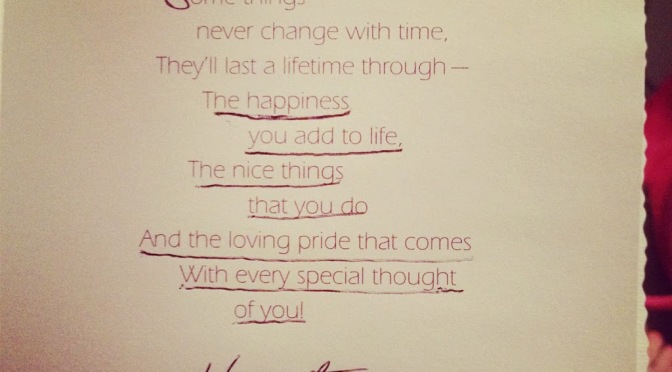 Some things
never change with time,
They'll last a lifetime through—
The happiness
you add to life,
The nice things
that you do
And the loving pride that comes
With every special thought
of you!